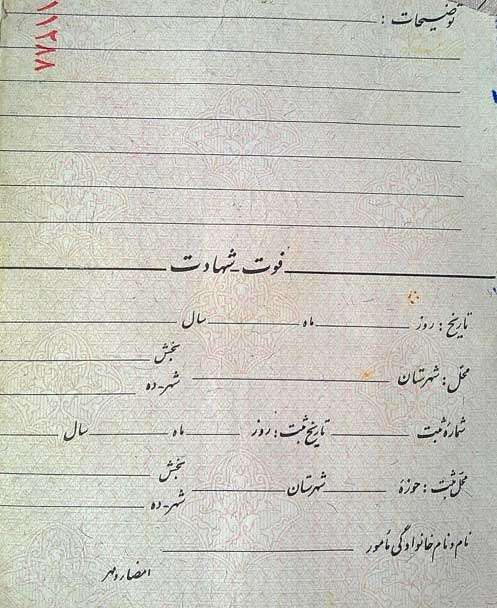 توضیحات :
۱۱۲۸۸
فوت - شهادت
تاریخ : روز ماه سال
محل : شهرستان بخش
شهر - ده
شمارهٔ ثبت تاریخ ثبت : روز ماه سال
محل ثبت : حوزهٔ شهرستان بخش
شهر - ده
نام و نام خانوادگی مأمور
امضاء و مهر